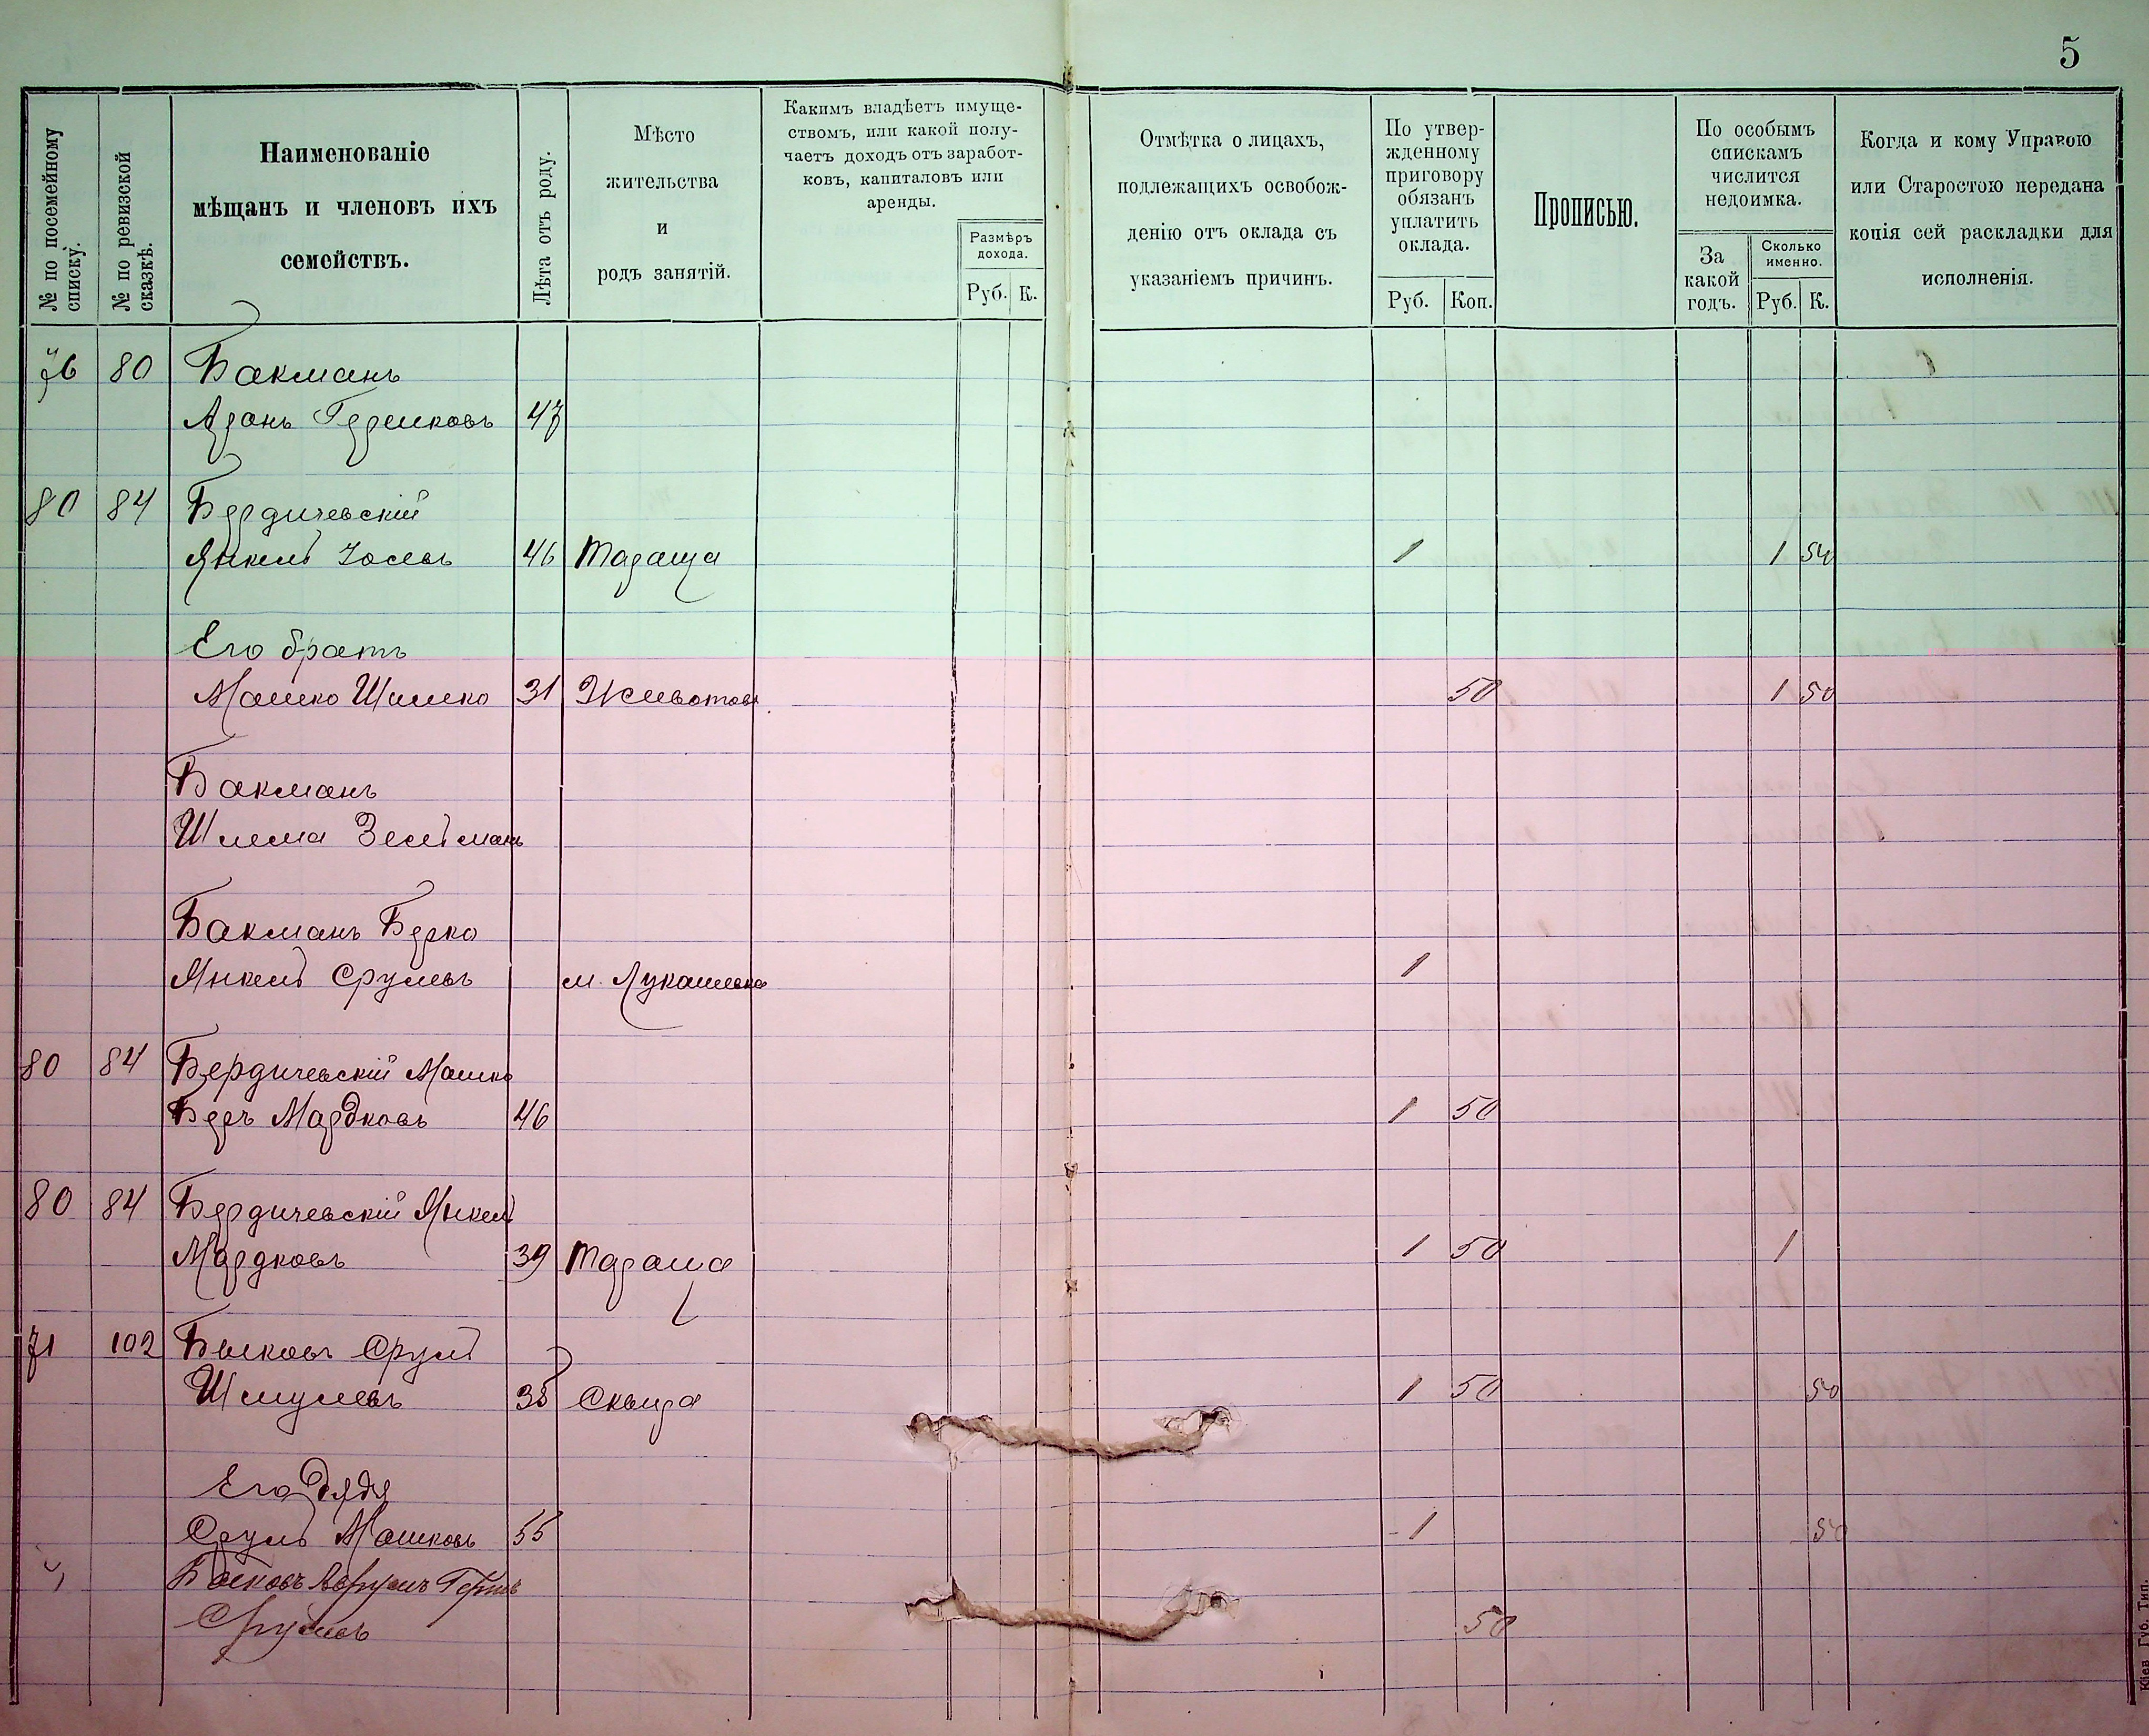 5
№ по посемейному списку.
№ по ревизской сказкѣ.
Наименованіе
мѣщанъ и членовъ ихъ
семействъ.
Лѣта отъ роду.
Мѣсто
жительства
и
родъ занятій.
Какимъ владѣетъ имуще-
ствомъ, или какой полу-
чаетъ доходъ отъ заработ-
ковъ, капиталовъ или
аренды.
Размѣръ
дохода.
Руб. К.
Отмѣтка о лицахъ,
подлежащихъ освобож-
денію отъ оклада съ
указаніемъ причинъ.
По утвер-
жденному
приговору
обязанъ
уплатить
оклада.
Руб. Коп.
Прописью.
По особымъ
спискамъ
числится
недоимка.
За
какой
годъ.
Сколько
именно.
Руб. К.
Когда и кому Управою
или Старостою передана
копія сей раскладки для
исполненія.
76 80 Бакманъ
47
80 84 Бердичевскій
Янкель Іосевъ 46 Тараща 1 1 50
Его братъ
Мошко Шмилко 31 Животовъ 50 1 50
Бакманъ
Шлема Зельманъ
Бакманъ Берко
Янкель Срулевъ м. Лукашевка 1
80 84 Бердичевскій Мошко
Беръ Мардковъ 46 1 50
80 84 Бердичевскій Янкель
Мардковъ 39 Тараща 1 50 1
71 102 Быковъ Сруль
Шмулевъ 38 Сквира 1 50 50
Его дядя
Сруль Мошковъ 55 1 50
Срулевъ 50
Кіев. Губ. Тип.